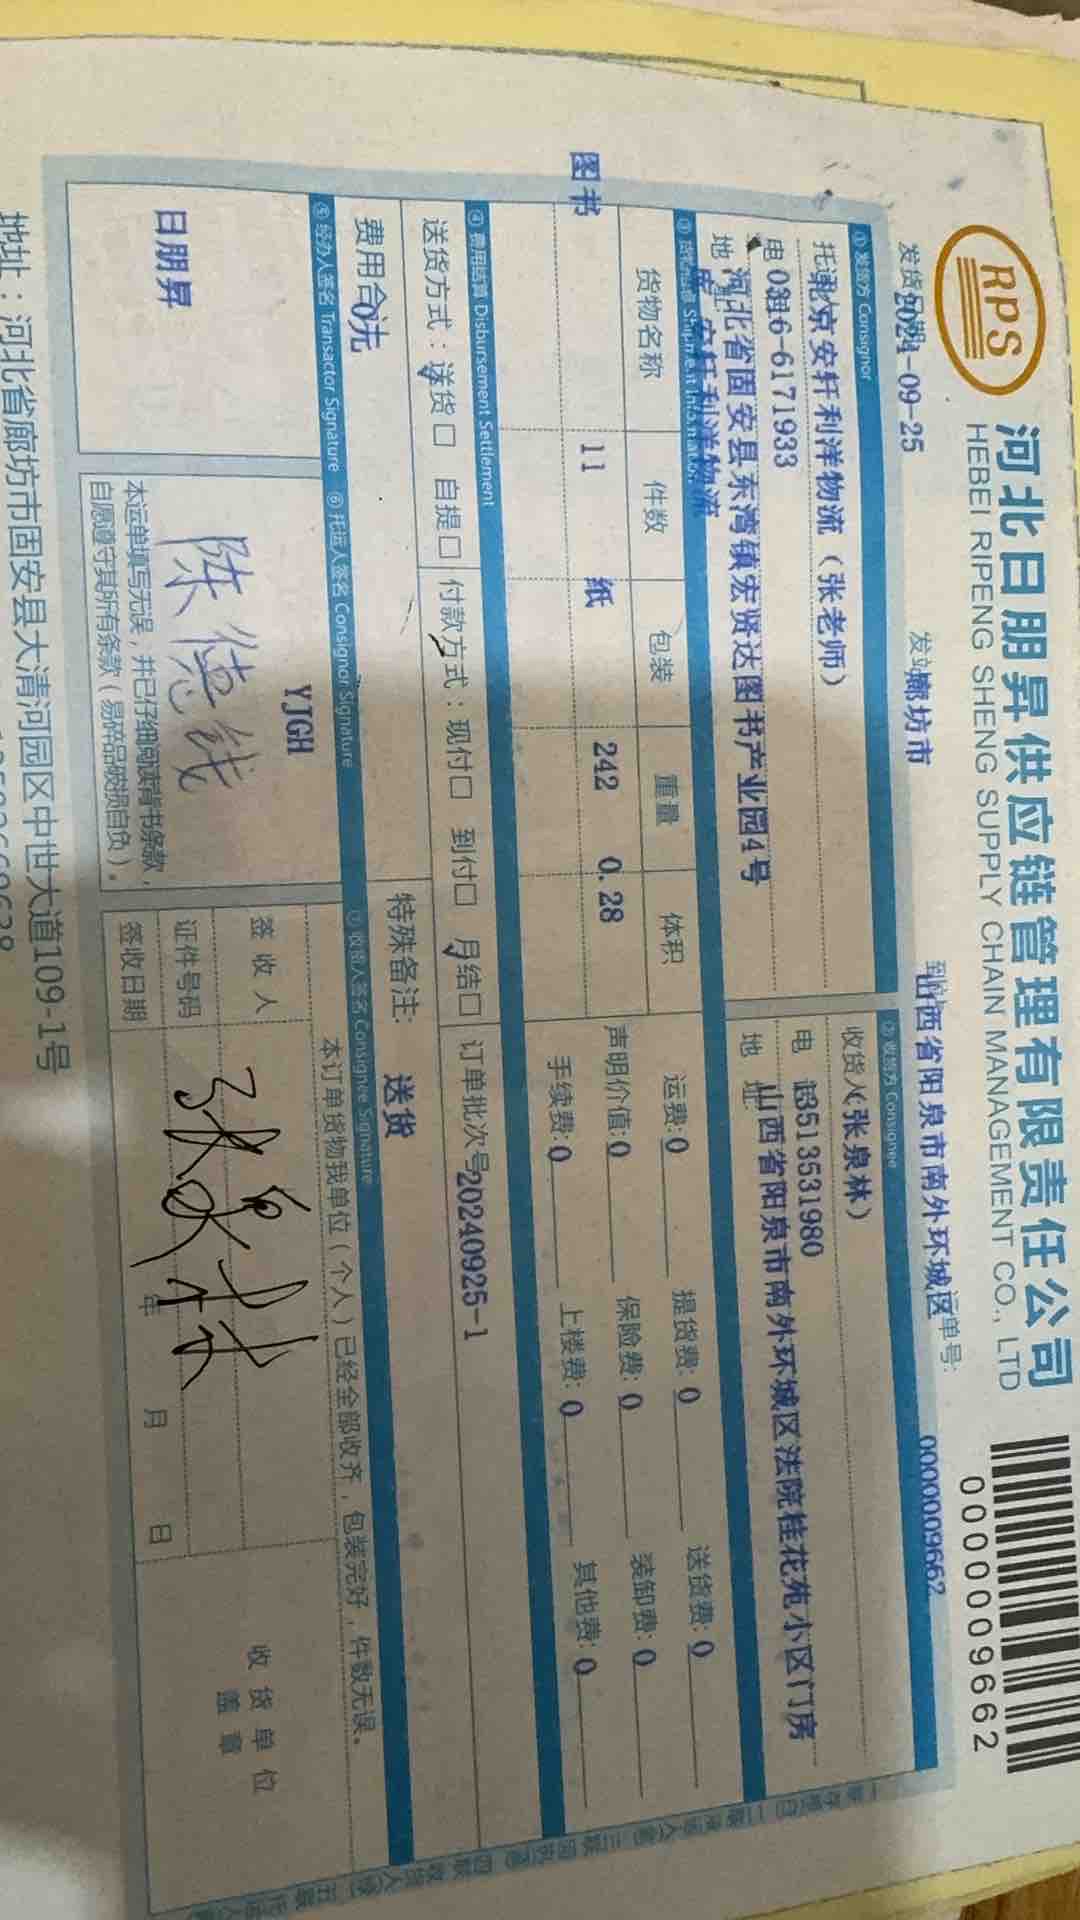 RPS
河北日朋昇供应链管理有限责任公司
HEBEI RIPENG SHENG SUPPLY CHAIN MANAGEMENT CO., LTD
0000009662
2024-09-25
发站 廊坊市
山西省阳泉市南外环城区
运单号: 0000009662
① 发货方 Consignor
北京安轩利洋物流（张老师）
0316-6171933
河北省固安县东湾镇宏贤达图书产业园4号
安轩利洋物流
② 收货方 Consignee
收货人 （张泉林）
电 13513531980
地址 山西省阳泉市南外环城区法院桂花苑小区门房
货物名称 件数 包装 重量 体积
图书 11 纸 242 0.28
运费:0 提货费:0 送货费:0
声明价值:0 保险费:0 装卸费:0
手续费:0 上楼费:0 其他费:0
④ 费用结算 Disbursement Settlement
送货方式：送货□ 自提□ 付款方式：现付□ 到付□ 月结□ 订单批次号 20240925-1
费用合 0
特殊备注: 送货
⑤ 经办人签名 Transactor Signature
⑥ 托运人签名 Consignor Signature
⑦ 收货人签名 Consignee Signature
日朋昇
YJGH
本运单填写无误，并已仔细阅读背书条款，
自愿遵守其所有条款（易碎品破损自负）。
本订单货物我单位（个人）已经全部收齐，包装完好，件数无误。
签收人 张泉林
证件号码
签收日期 年 月 日
收货单位
盖章
地址：河北省廊坊市固安县大清河园区中世大道109-1号